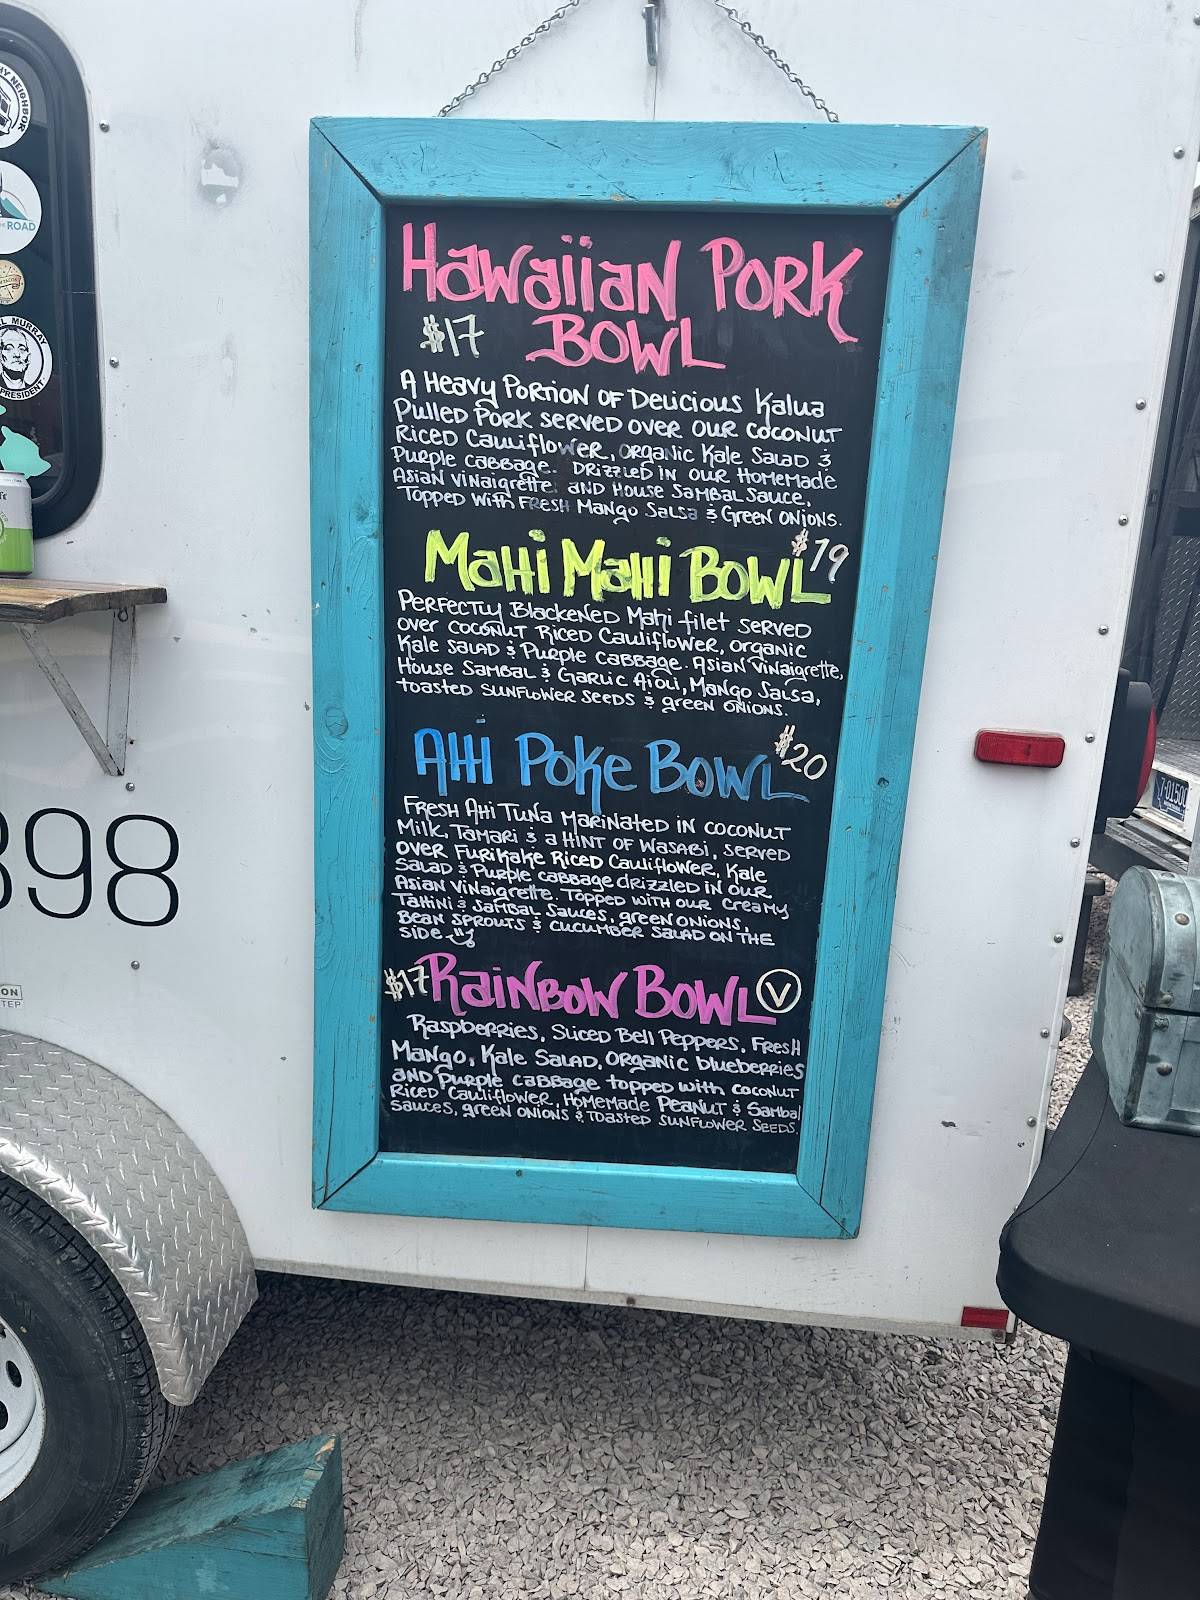 Hawaiian Pork
$17 Bowl
A Heavy Portion of Delicious Kalua
Pulled Pork served over our coconut
Riced Cauliflower, organic Kale Salad &
Purple cabbage. Drizzled in our Homemade
Asian Vinaigrette and House Sambal Sauce.
Topped with Fresh Mango Salsa & Green Onions.
Mahi Mahi Bowl $19
Perfectly Blackened Mahi filet served
over coconut Riced Cauliflower, organic
Kale salad & Purple cabbage. Asian Vinaigrette,
House Sambal & Garlic Aioli, Mango Salsa,
toasted sunflower seeds & green onions.
Ahi Poke Bowl $20
Fresh Ahi Tuna Marinated in coconut
Milk, Tamari & a Hint of Wasabi, served
over Furikake Riced Cauliflower, Kale
Salad & Purple cabbage drizzled in our
Asian Vinaigrette. Topped with our creamy
Tahini & Sambal Sauces, green onions,
Bean sprouts & cucumber salad on the
side
$17 Rainbow Bowl V
Raspberries, Sliced Bell Peppers, Fresh
Mango, Kale Salad, Organic blueberries
and Purple cabbage topped with coconut
Riced Cauliflower, Homemade Peanut & Sambal
sauces, green onions & toasted sunflower seeds.
NEIGHBOR
ROAD
MURRAY
PRESIDENT
898
ON
TEP
7-0150